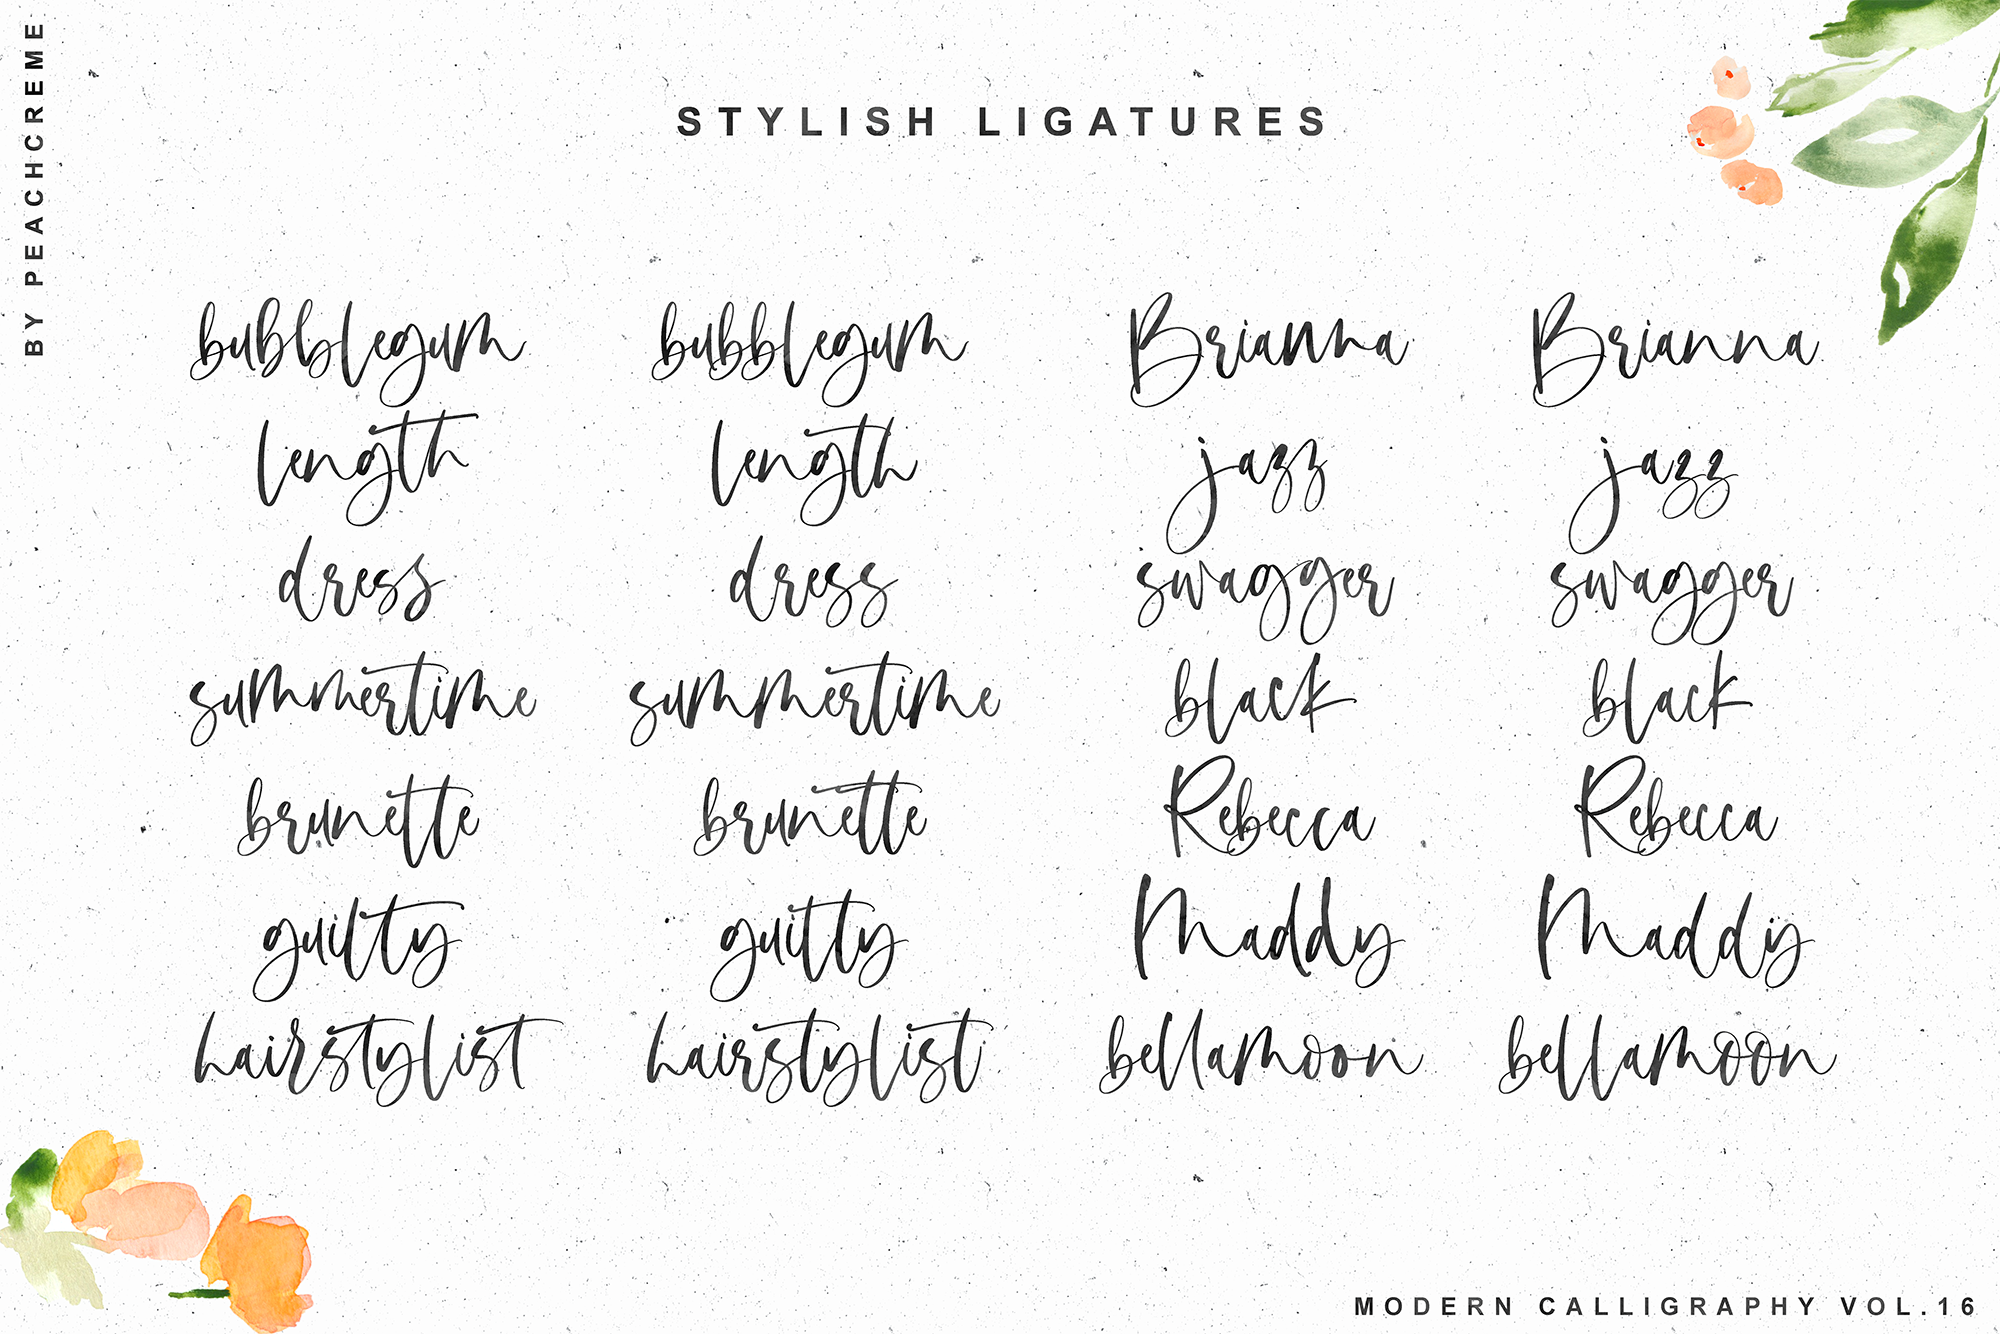 BY PEACHCREME
STYLISH LIGATURES
bubblegum bubblegum Brianna Brianna
length length jazz jazz
dress dress swagger swagger
summertime summertime black black
brunette brunette Rebecca Rebecca
guilty guitty Maddy Maddy
hairstylist hairstylist bellamoon bellamoon
MODERN CALLIGRAPHY VOL.16